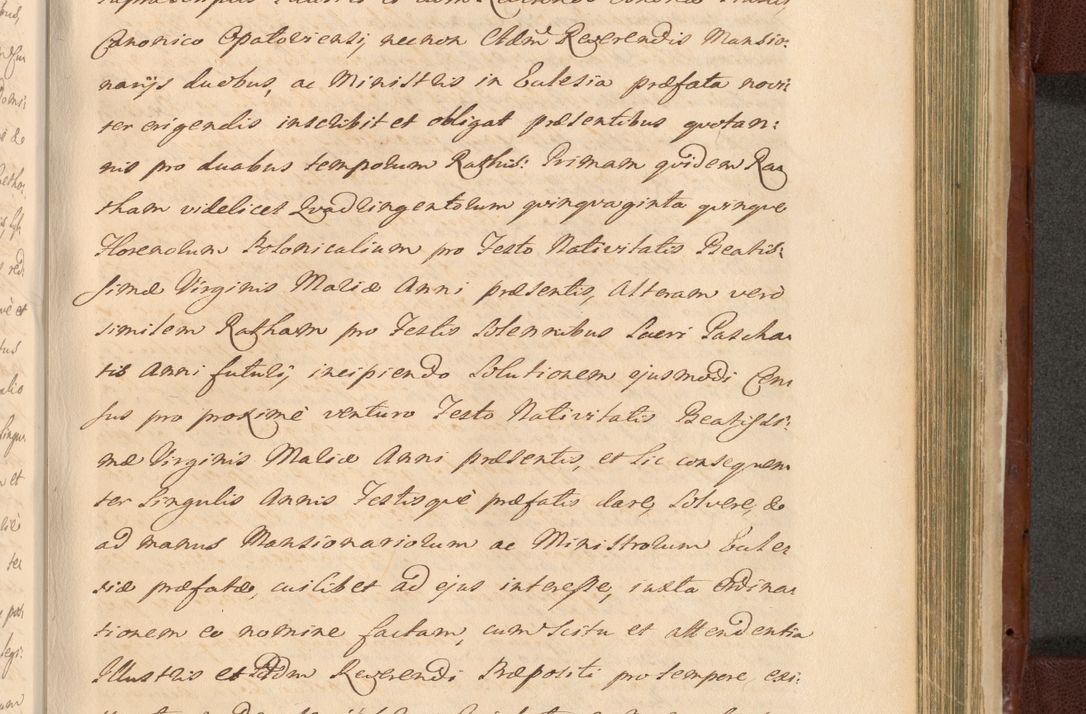 Canonico Opatoviensi, necnon Adm Reverendis Mansio:
narijs duobus, ac Ministris in Eclesia præfata novi
ter erigendis inscribit et obligat præsentibus quotan:
nis pro duabus temporum Rathis: Primam quidem Ra
tham videlicet Quadringentorum quinquaginta quinque
Florenorum Polonicalium pro Festo Nativitatis Beatis:
simæ Virginis Mariæ Anni præsentis, Alteram vero
similem Ratham pro Festis Solennibus Sacri Pascha
tis Anni futuri, incipiendo Solutionem ejusmodi Cen
sus pro proximè venturo Festo Nativitatis Beatissi:
mæ Virginis Mariæ Anni præsentis, et sic consequen
ter Singulis Annis Festisquè præfatis dare, Solvere, &
ad manus Mansionariorum ac Ministrorum Eccle
siæ præfatæ, cuilibet ad ejus interesse, iuxta Ordina
tionem eo nomine factam, cum Scitu et attendentia
Illustris et Adm Reverendi Præpositi pro tempore, exi: